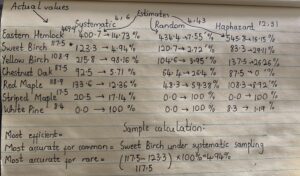 Actual values
Estimates
4.6 4.43 12:31
Systematic Random Haphazard
Eastern Hemlock 469.9 400.7 - 14.73 % 434.4 - 7.55 % 545.8 - 16.15 %
Sweet Birch 117.5 123.3 - 4.94 % 120.7 - 2.72 % 83.3 - 29.11 %
Yellow Birch 108.9 215.8 - 98.16 % 104.6 - 3.95 % 137.5 - 26.26 %
Chestnut Oak 87.5 92.5 - 5.71 % 64.4 - 26.4 % 87.5 - 0 %
Red Maple 118.9 133.6 - 12.36 % 48.3 - 59.38 % 108.3 - 8.92 %
Striped Maple 17.5 20.5 - 17.14 % 0.0 → 100 % 0.0 → 100 %
White Pine 8.4 0.0 → 100 % 0.0 → 100 % 8.3 - 1.19 %
Sample calculation -
Most efficient =
Most accurate for common = Sweet Birch under systematic sampling
Most accurate for rare = (117.5 - 123.3) × 100% = 4.94%
117.5